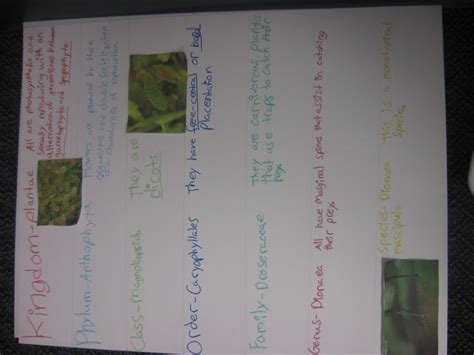 Kingdom-plantae
All are photosynthetic and
sexually reproducing with an
alternation of generations between
gametophyte and sporophyte.
Phylum-Anthophyta
Flowers are possessed by these
organisms and double fertilization
is a characteristic of reproduction.
Class-Magnoliopsida
They are
dicots.
Order-Caryophyllales
They have free-central or basal
Placentation
Family-Droseraceae
They are carnivorous plants
that use traps to catch their
prey.
Genus-Dionaea
All have marginal spines that assist in catching
their prey.
species Dionaea
This is a
species.